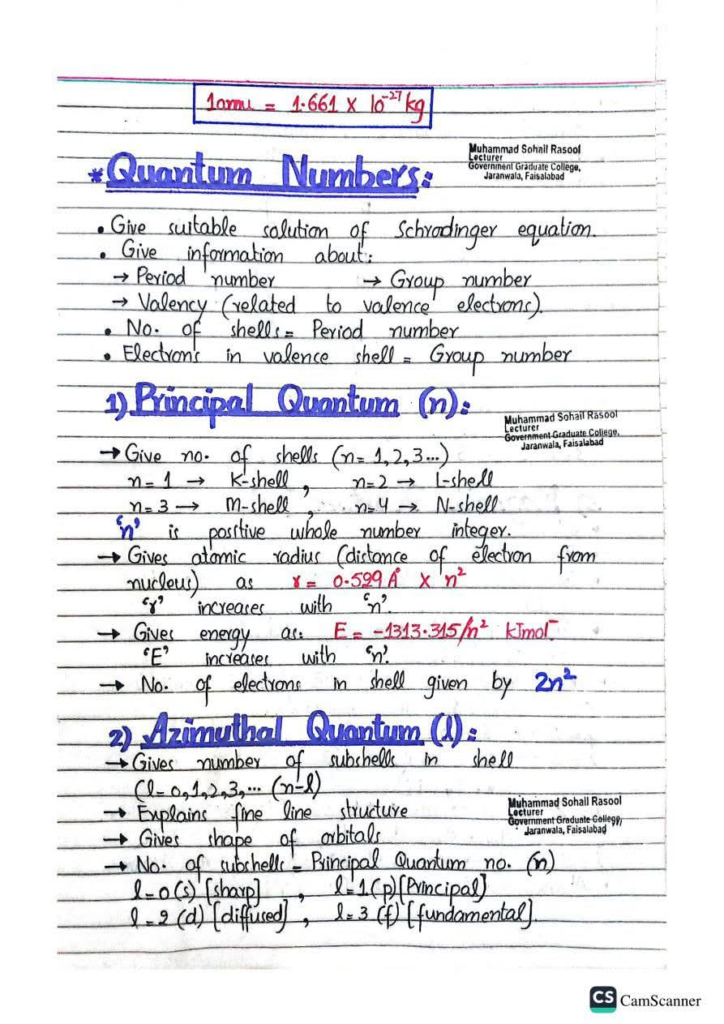 1amu = 1.661 × 10⁻²⁷ kg
Muhammad Sohail Rasool
Lecturer
Government Graduate College,
Jaranwala, Faisalabad
*Quantum Numbers:
• Give suitable solution of Schrodinger equation.
• Give information about:
→ Period number → Group number
→ Valency (related to valence electrons).
• No. of shells = Period number
• Electrons in valence shell = Group number
1) Principal Quantum (n):
Muhammad Sohail Rasool
Lecturer
Government Graduate College,
Jaranwala, Faisalabad
→ Give no. of shells (n= 1,2,3...)
n=1 → K-shell , n=2 → L-shell
n=3 → M-shell , n=4 → N-shell
'n' is positive whole number integer.
→ Gives atomic radius (distance of electron from
nucleus) as r = 0.599 Å × n²
'r' increases with 'n'.
→ Gives energy as: E = -1313.315/n² kJmol⁻
'E' increases with 'n'.
→ No. of electrons in shell given by 2n²
2) Azimuthal Quantum (l):
→ Gives number of subshells in shell
(l=0,1,2,3,... (n-l)
→ Explains fine line structure
→ Gives shape of orbitals
Muhammad Sohail Rasool
Lecturer
Government Graduate College,
Jaranwala, Faisalabad
→ No. of subshells = Principal Quantum no. (n)
l=0(s) [sharp] , l=1(p)[Principal]
l=2 (d) [diffused] , l=3 (f) [fundamental].
CS CamScanner